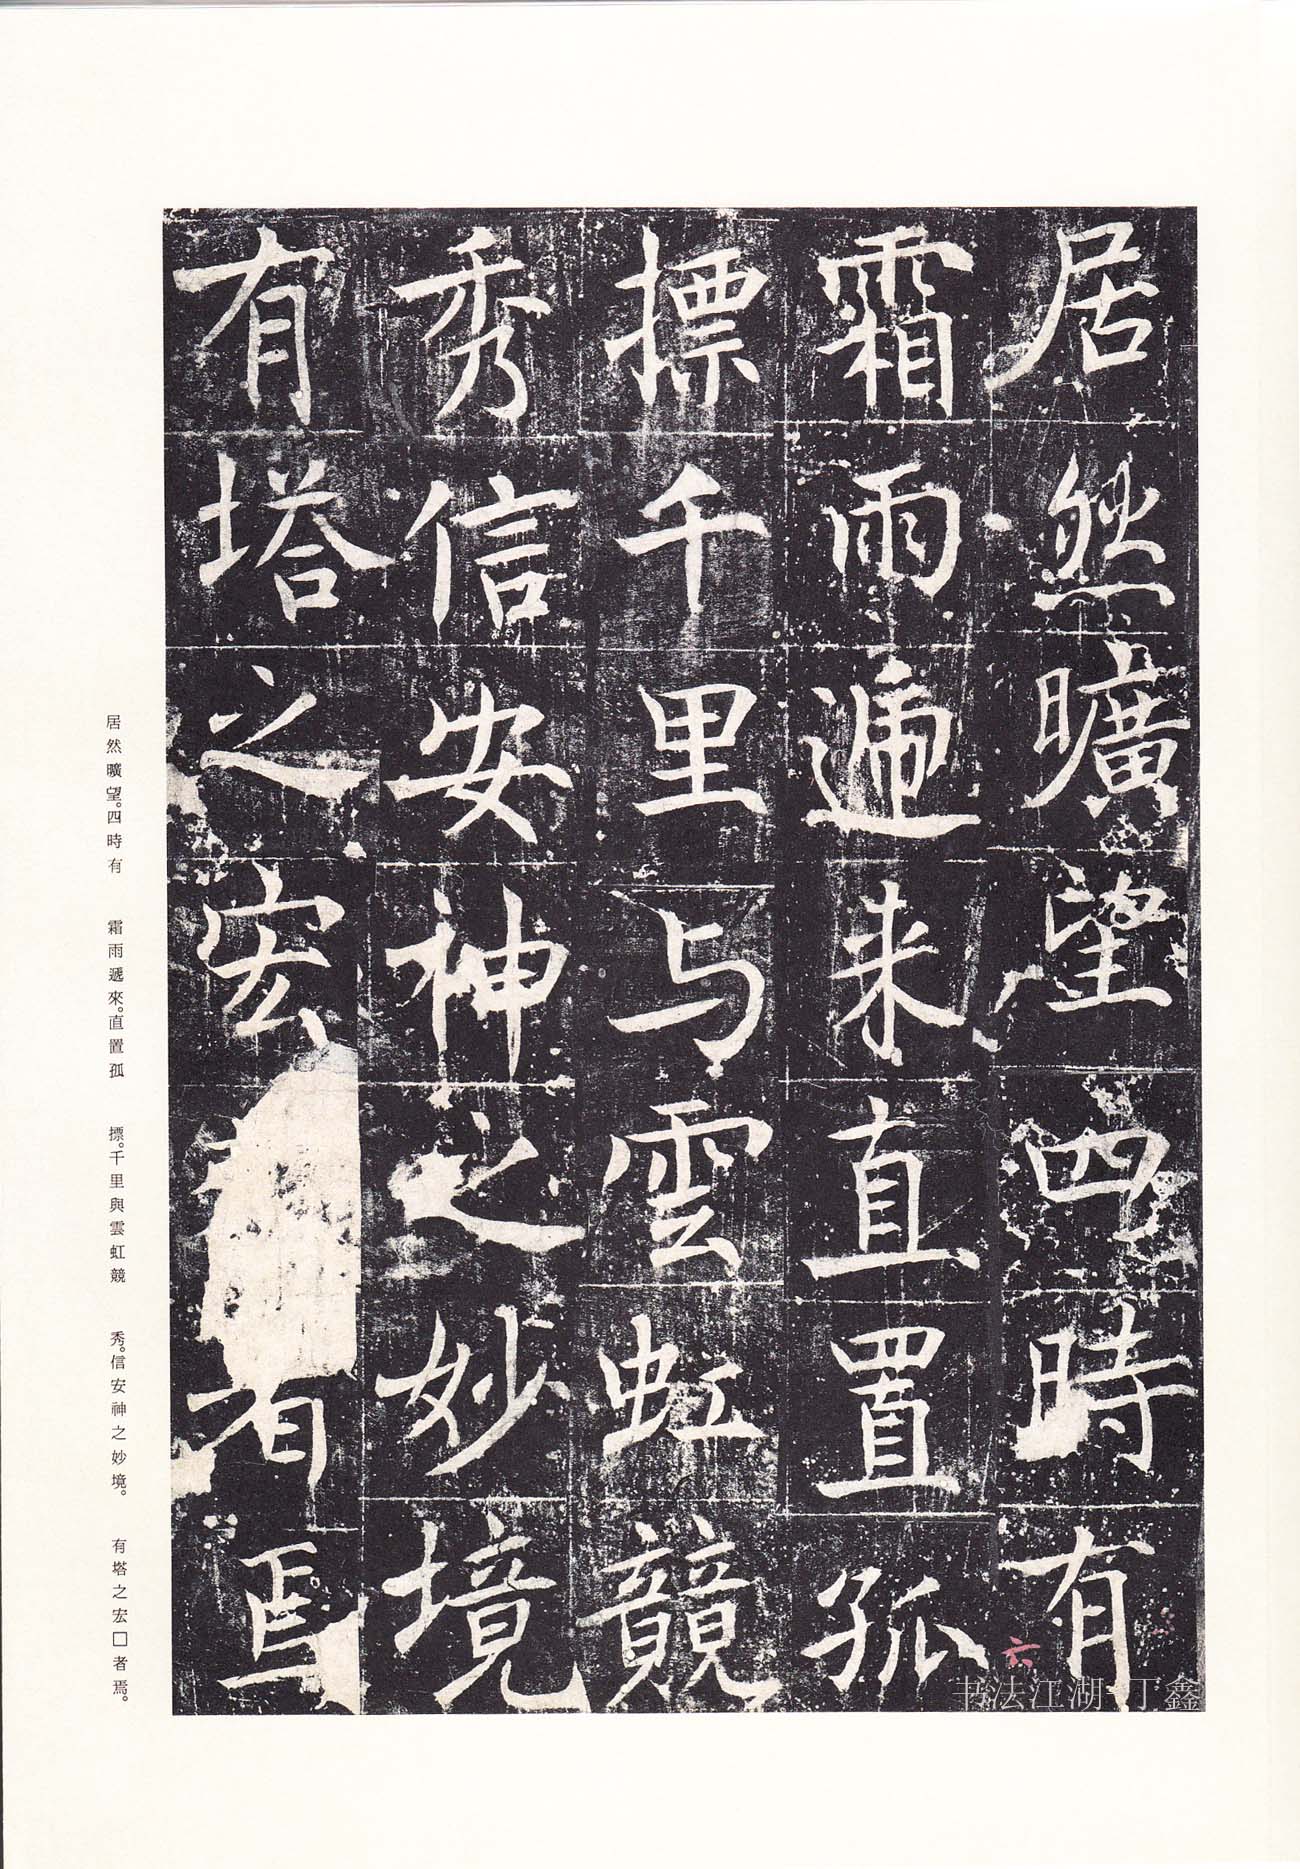 居然曠望四時有
霜雨遞来直置孤
摽千里与雲虹競
秀信安神之妙境
有塔之宏者焉
六
居然曠望。四時有
霜雨遞來。直置孤
摽。千里與雲虹競
秀。信安神之妙境。
有塔之宏□者焉。
书法江湖-丁鑫